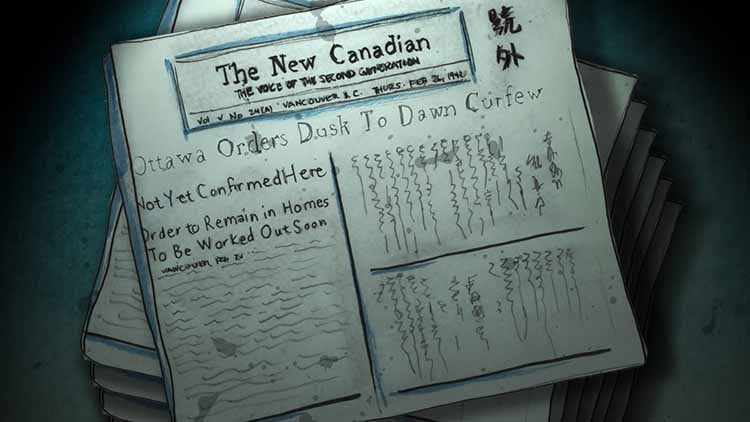 The New Canadian
THE VOICE OF THE SECOND GENERATION
Vol V No 24(A) · VANCOUVER B.C. THURS · FEB 26, 1942
號外
Ottawa Orders Dusk To Dawn Curfew
Not Yet Confirmed Here
Order to Remain in Homes
To Be Worked Out Soon
VANCOUVER FEB